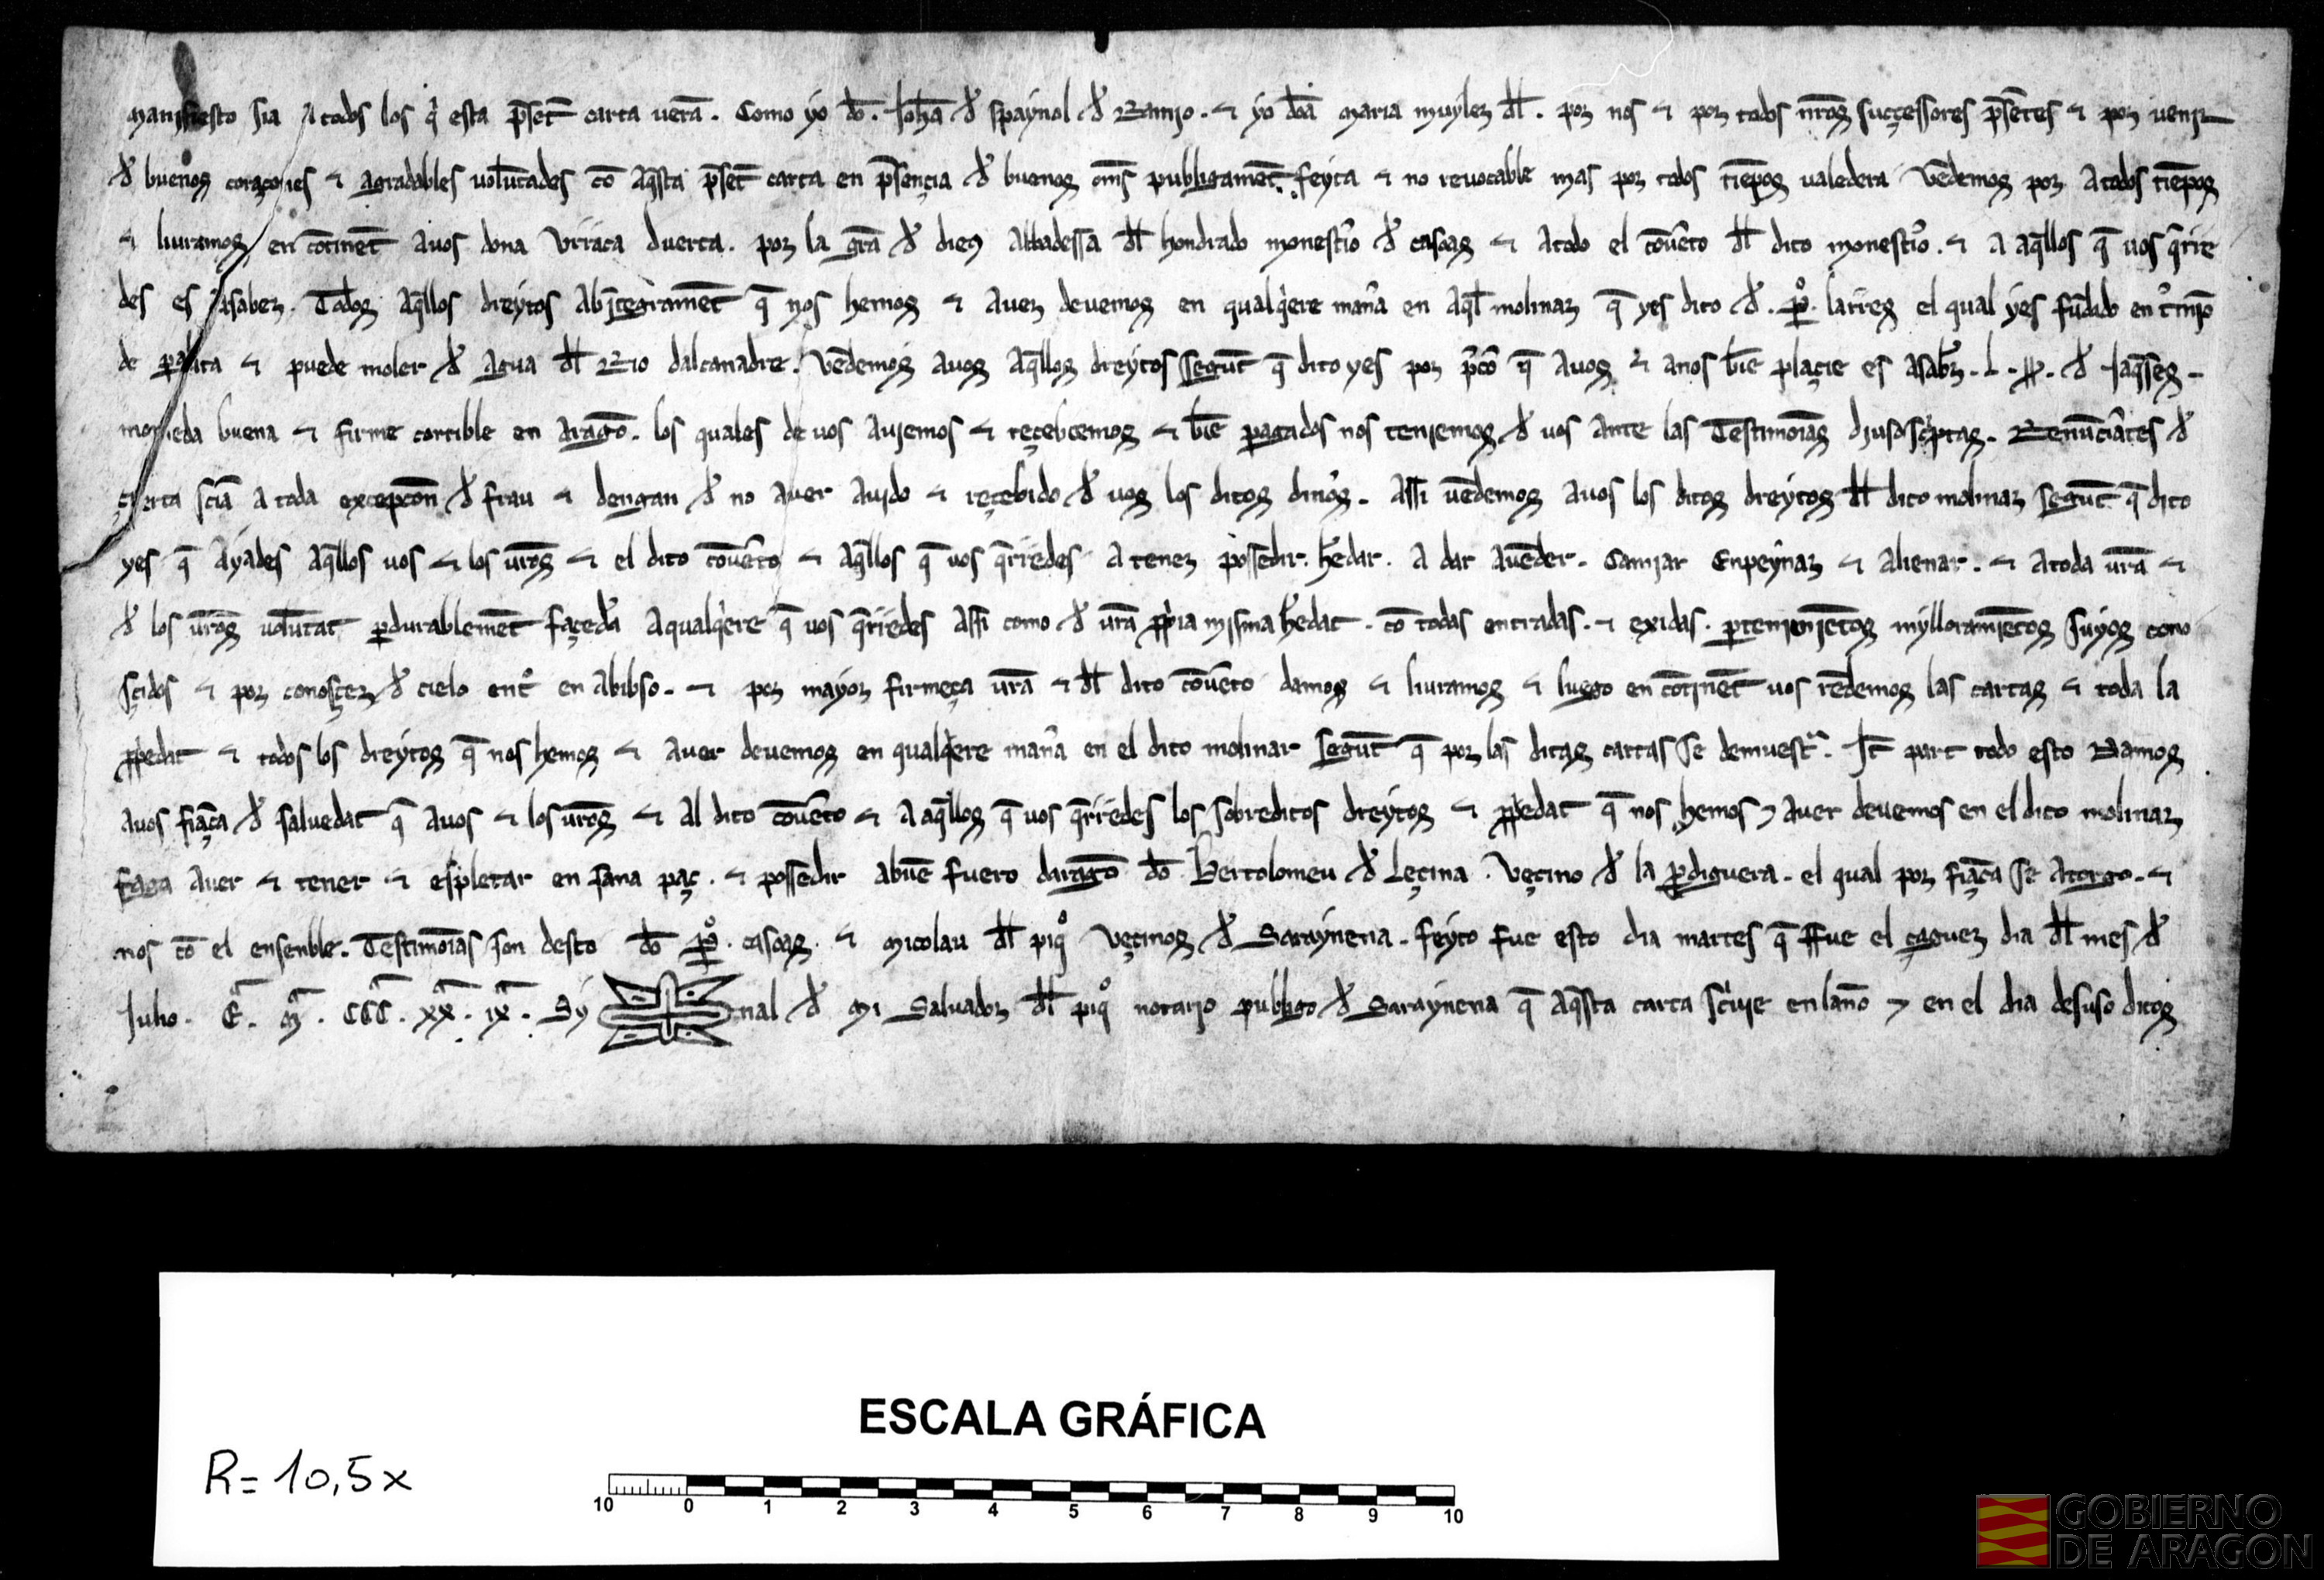 Manifiesto sia A todos los q̃ esta p̃set̃ carta verã. Como yo dõ. Johã d̃ spaynol d̃ Ramio. & yo doã Maria muyler dl̃. por nos & por todos nr̃os sucçessores p̃sẽtes & por venir
d̃ buenos coraçones & agradables volũtades cõ aq̃sta p̃set̃ carta en p̃sençia d̃ buenos om̃s publigamẽt. feyta & no revocable mas por todos tiẽpos valedera Vẽdemos por a todos tiẽpos
& liuramos en cõtinẽt auos dona Vrraca duerta. por la gr̃a d̃ dies abbadessa dl̃ hondrado monest̃io d̃ casoas & atodo el cõuẽto dl̃ dito monest̃io. & a aq̃llos q̃ vos q̃rrie
des es asaber. Todos aq̃llos dreytos abĩtegramẽt q̃ nos hemos & auer deuemos en qualq̃ere man̂a en aq̃l molinar q̃ yes dito d̃. P̲o. larres el qual yes fũdado en t̃mino
de p̱alita & puede moler d̃ agua dl̃ Rio dalcanadre. Vẽdemos auos aq̃llos dreytos segũt q̃ dito yes por p̃cõ q̃ auos & anos biẽ plaçie es asaber. L. ss. d̃ Jaq̃ses.
moneda buena & firme corrible en aragõ. los quales de vos auiemos & reçebiemos & biẽ p̱agados nos teniemos d̃ vos ante las Testimonias diuso sc̃ptas. Renũciãtes d̃
çierta sciã a toda excepcõn d̃ frau & dengan d̃ no auer auido & reçebido d̃ vos los ditos din̂os. assi vẽdemos auos los ditos dreytos dl̃ dito molinar segũt q̃ dito
yes q̃ ayades aq̃llos vos & los vr̃os & el dito cõuẽto & aq̃llos q̃ vos q̃rriedes a tener possedir. hẽdar. a dar avẽder. camiar Enpeynar & alienar. & atoda vr̃a &
d̃ los vr̃os volũtat p̱durablemẽt façed̃a aqualq̃ere q̃ vos q̃rriedes assi como d̃ vr̃a p̱p̱ia misma hẽdat. cõ todas entradas. & exidas. p̱tenimiẽtos mylloramiẽtos suyos cono
sçidos & por conosçer d̃ cielo ent̃o en abibso. & por mayor firmeça vr̃a & dl̃ dito cõuẽto damos & liuramos & luego en cõtinẽt vos rẽdemos las cartas & toda la
p̱p̱iedat & todos los dreytos q̃ nos hemos & auer deuemos en qualq̃ere man̂a en el dito molinar segũt q̃ por las ditas cartas se demuest̃. It̃ part todo esto Damos
auos fiãça d̃ saluedat q̃ auos & los vr̃os & al dito cõuẽto & a aq̃llos q̃ vos q̃rriedes los sobreditos dreytos & p̱p̱iedat q̃ nos hemos & auer deuemos en el dito molinar
faga auer & tener & espletar en sana paç. & possedir abuẽ fuero daragõ dõ Bertolomeu d̃ Leçina. Veçino d̃ la p̱diguera. el qual por fiãça se atorgo. &
nos cõ el ensenble. Testimonias son desto dõ P̲o. casoas. & Nicolau dl̃ piq̃o Veçinos d̃ Saraynena. feyto fue esto dia martes q̃ ffue el çaguer dia dl̃ mes d̃
Julio. E. M. CCC. xx. ix. Sy nal d̃ mi Saluador dl̃ piq̃o notario publigo d̃ Saraynena q̃ aq̃sta carta sc̃uie en lanõ & en el dia desuso ditos
ESCALA GRÁFICA
R=10,5x
10 0 1 2 3 4 5 6 7 8 9 10
GOBIERNO
DE ARAGON